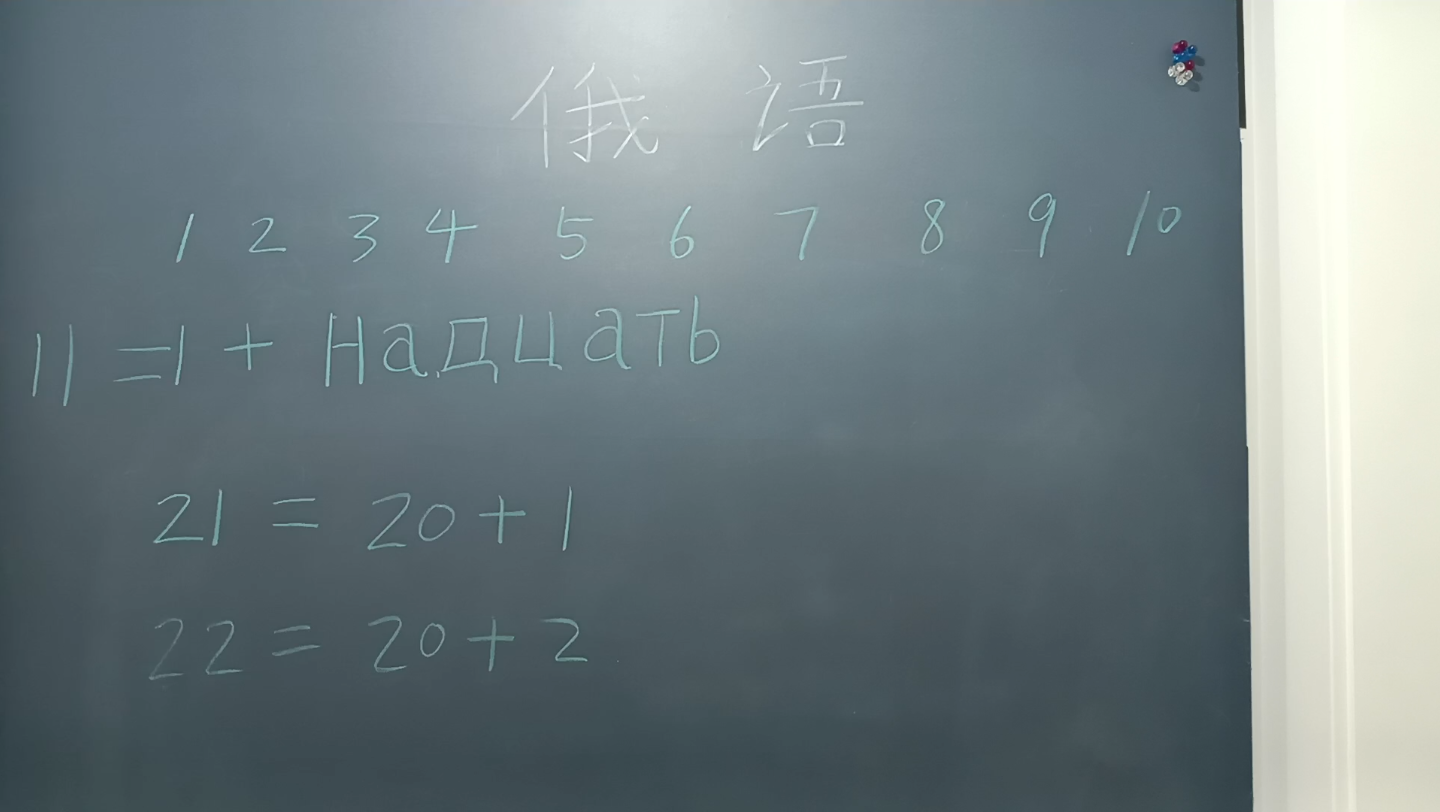 俄 语
1 2 3 4 5 6 7 8 9 10
11 = 1 + надцать
21 = 20 + 1
22 = 20 + 2